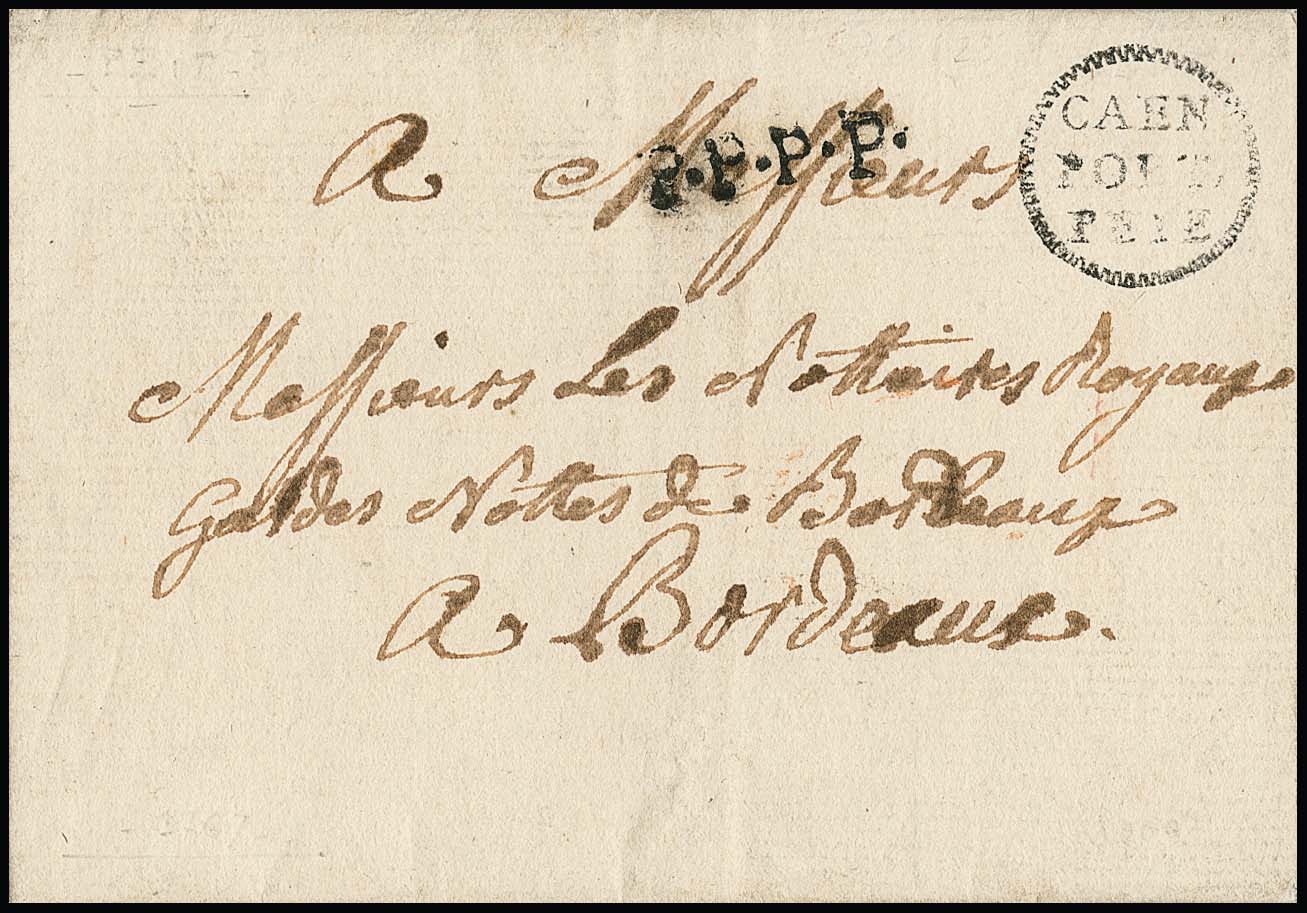 A Messieurs
P.P.P.P.
CAEN
PORT
PEYE
Messieurs Les Nottaires Royaux
Gardes Nottes de Bordeaux
A Bordeaux.